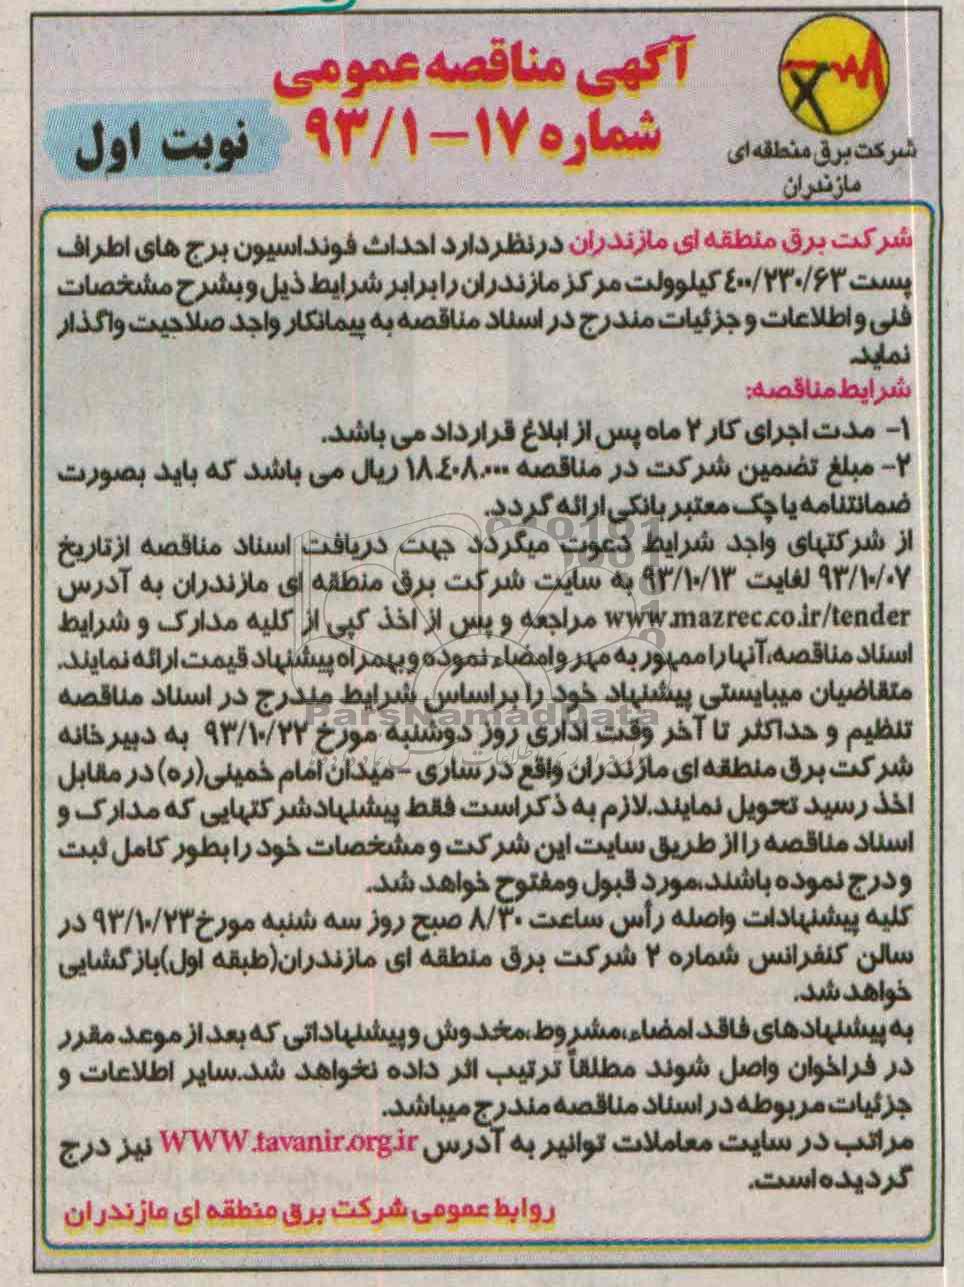 آگهی مناقصه عمومی
شماره ۱۷-۹۳/۱
نوبت اول
شرکت برق منطقه ای
مازندران
شرکت برق منطقه ای مازندران درنظردارد احداث فونداسیون برج های اطراف
پست ۴۰۰/۲۳۰/۶۳ کیلوولت مرکز مازندران را برابر شرایط ذیل و بشرح مشخصات
فنی و اطلاعات و جزئیات مندرج در اسناد مناقصه به پیمانکار واجد صلاحیت واگذار
نماید.
شرایط مناقصه:
۱- مدت اجرای کار ۲ ماه پس از ابلاغ قرارداد می باشد.
۲- مبلغ تضمین شرکت در مناقصه ۱۸.۴۰۸.۰۰۰ ریال می باشد که باید بصورت
ضمانتنامه یا چک معتبر بانکی ارائه گردد.
از شرکتهای واجد شرایط دعوت میگردد جهت دریافت اسناد مناقصه ازتاریخ
۹۳/۱۰/۰۷ لغایت ۹۳/۱۰/۱۳ به سایت شرکت برق منطقه ای مازندران به آدرس
www.mazrec.co.ir/tender مراجعه و پس از اخذ کپی از کلیه مدارک و شرایط
اسناد مناقصه،آنها را ممهور به مهر و امضاء نموده و بهمراه پیشنهاد قیمت ارائه نمایند.
متقاضیان میبایستی پیشنهاد خود را براساس شرایط مندرج در اسناد مناقصه
تنظیم و حداکثر تا آخر وقت اداری روز دوشنبه مورخ ۹۳/۱۰/۲۲ به دبیرخانه
شرکت برق منطقه ای مازندران واقع در ساری -میدان امام خمینی(ره) در مقابل
اخذ رسید تحویل نمایند.لازم به ذکراست فقط پیشنهادشرکتهایی که مدارک و
اسناد مناقصه را از طریق سایت این شرکت و مشخصات خود را بطور کامل ثبت
و درج نموده باشند،مورد قبول ومفتوح خواهد شد.
کلیه پیشنهادات واصله رأس ساعت ۸/۳۰ صبح روز سه شنبه مورخ ۹۳/۱۰/۲۳ در
سالن کنفرانس شماره ۲ شرکت برق منطقه ای مازندران(طبقه اول)بازگشایی
خواهد شد.
به پیشنهادهای فاقد امضاء،مشروط،مخدوش و پیشنهاداتی که بعد از موعد مقرر
در فراخوان واصل شوند مطلقاً ترتیب اثر داده نخواهد شد.سایر اطلاعات و
جزئیات مربوطه در اسناد مناقصه مندرج میباشد.
مراتب در سایت معاملات توانیر به آدرس WWW.tavanir.org.ir نیز درج
گردیده است.
روابط عمومی شرکت برق منطقه ای مازندران
ParsNamadData